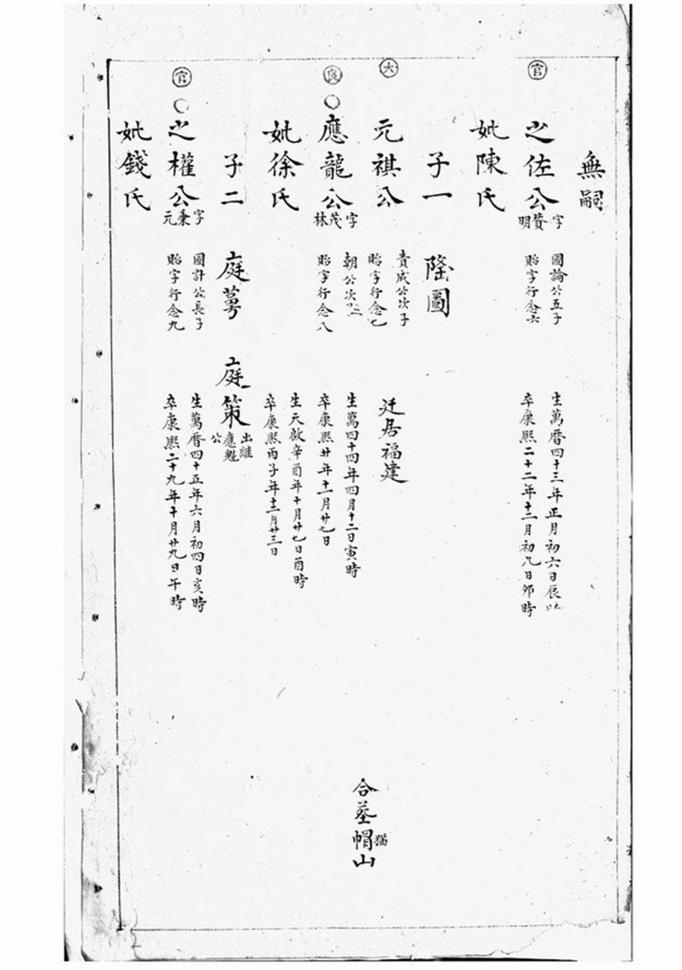 無嗣
官
之佐公
字贊明
國論公五子
貽字行念六
生萬曆四十三年正月初六日辰時
卒康熙二十二年十二月初九日卯時
妣陳氏
子一
隆圖
大
元祺公
貴成公次子
貽字行念七
迁居福建
良
應龍公
字茂林
朝公次子
貽字行念八
生萬四十四年四月十二日寅時
卒康熙廿年十一月廿七日
合墓帽山
猫
妣徐氏
生天啟辛酉年十月廿七日酉時
卒康熙丙子年十二月廿三日
子二
庭蕚
庭策
出継應魁公
官
之權公
字秉元
國計公長子
貽字行念九
生萬曆四十五年六月初四日亥時
卒康熙二十九年十月廿九日午時
妣錢氏